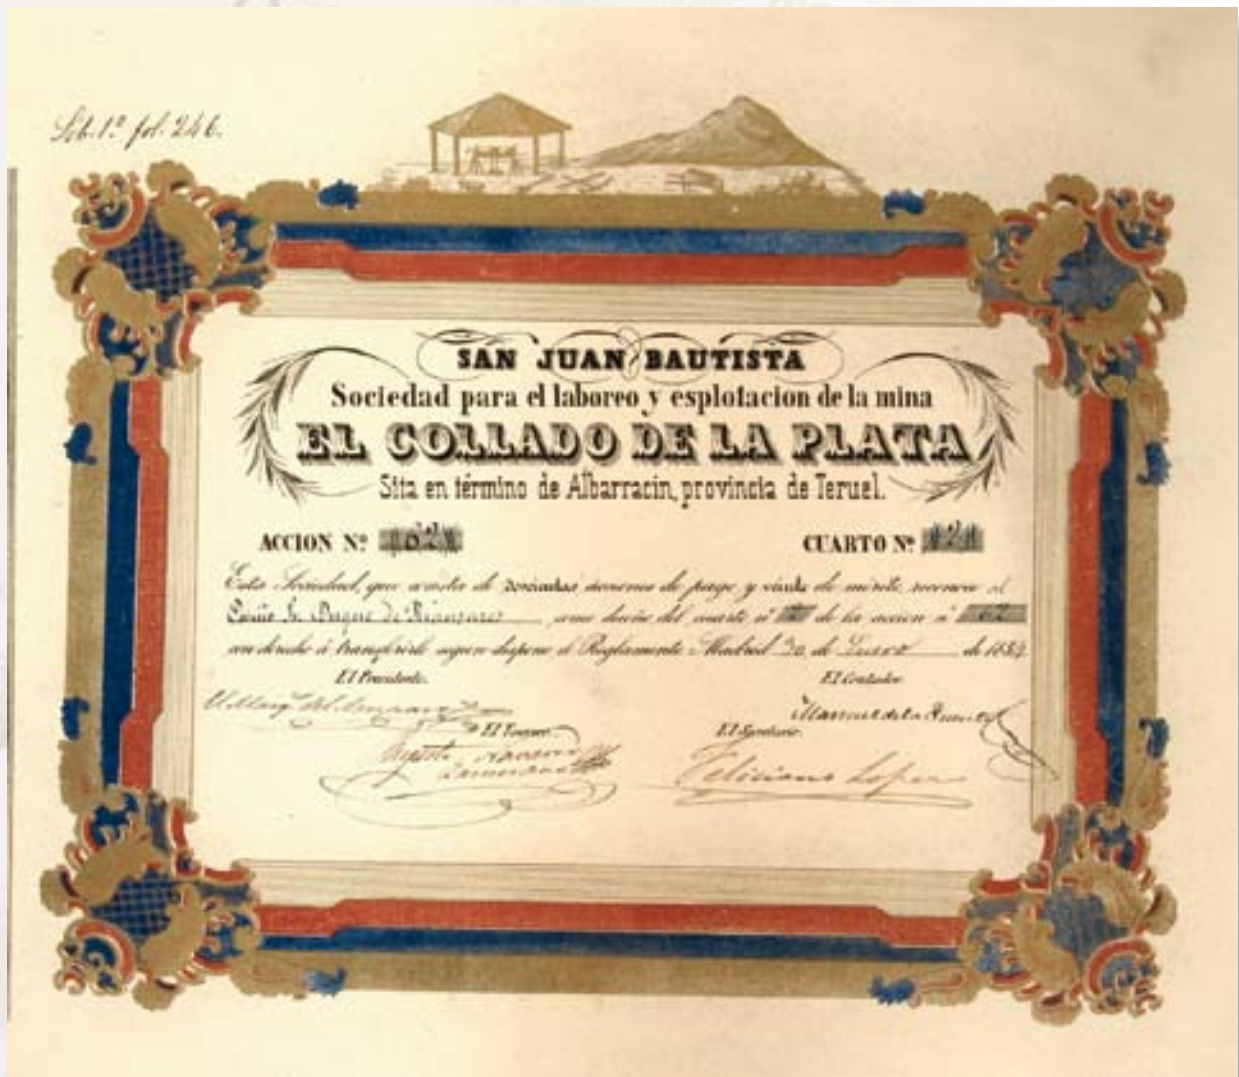 Lib. 1º fol. 246.
SAN JUAN BAUTISTA
Sociedad para el laboreo y esplotacion de la mina
EL COLLADO DE LA PLATA
Sita en término de Albarracin, provincia de Teruel.
ACCION Nº 62 CUARTO Nº 2
Esta Sociedad, que consta de doscientas acciones de pago y veinte de mérito, reconoce al
Duque de Riansares como dueño del cuarto nº 2 de la accion nº 62
con derecho á transferirle segun dispone el Reglamento. Madrid 30 de Enero de 185
El Presidente. El Contador.
El Marqs. del Manuel de la Fuente
El Tesorero. El Secretario.
Feliciano Lopez